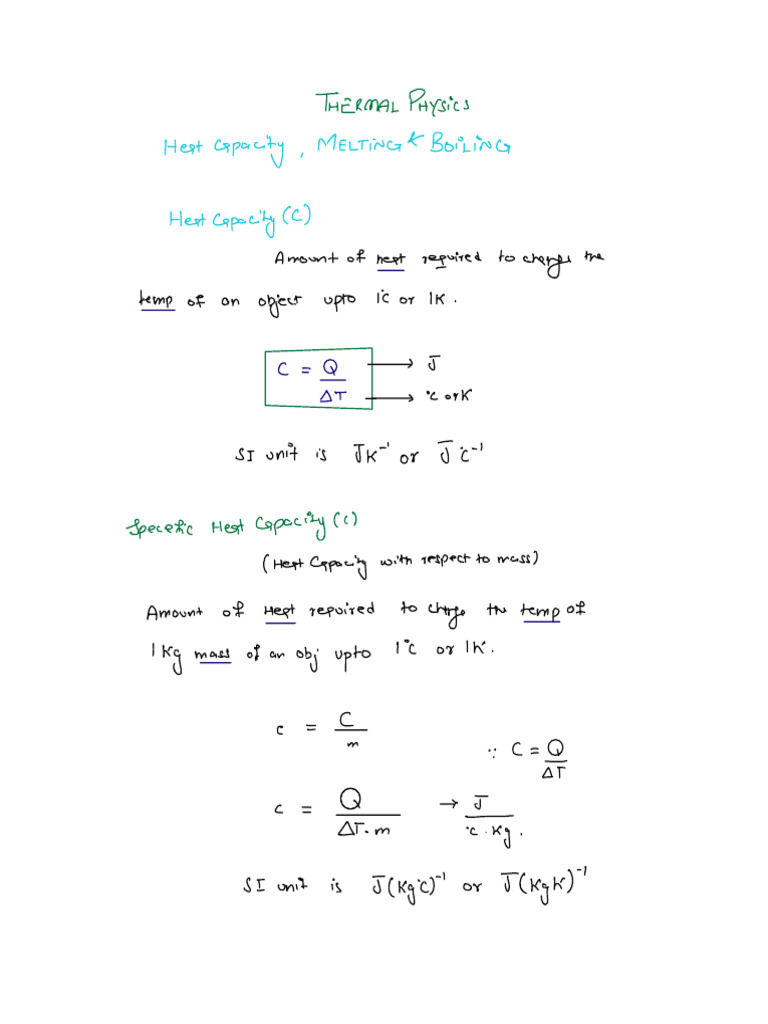 THERMAL PHYSICS
Heat Capacity, MELTING & BOILING
Heat Capacity (C)
Amount of heat required to change the
temp of an object upto 1°C or 1K.
C = Q/ΔT → J
→ °C or K
SI unit is JK⁻¹ or J°C⁻¹
Specific Heat Capacity (c)
(Heat Capacity with respect to mass)
Amount of Heat required to change the temp of
1 Kg mass of an obj upto 1°C or 1K.
c = C/m
∵ C = Q/ΔT
c = Q/ΔT.m → J/°C.Kg.
SI unit is J(Kg°C)⁻¹ or J(KgK)⁻¹